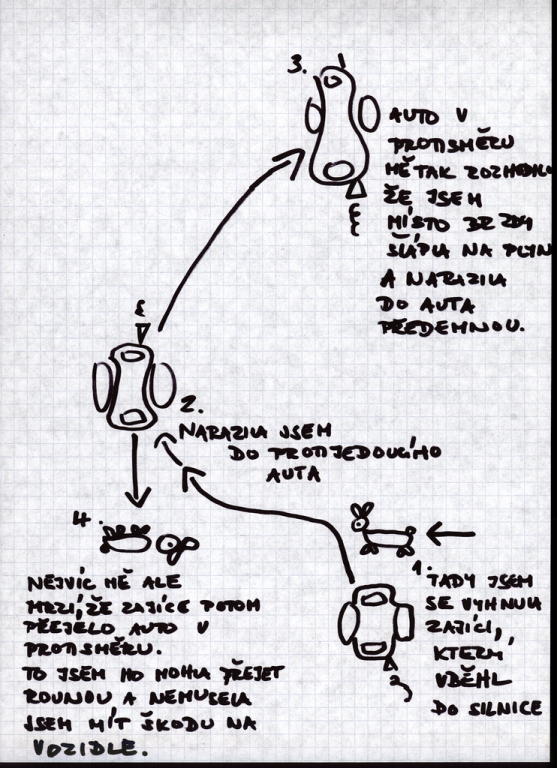 1.
TADY JSEM
SE VYHNULA
ZAJÍCI,
KTERÝ
VBĚHL
DO SILNICE
2.
NARAZILA JSEM
DO PROTIJEDOUCÍHO
AUTA
3.
AUTO V
PROTISMĚRU
MĚ TAK ROZHODILO
ŽE JSEM
MÍSTO BRZDY
ŠLÁPLA NA PLYN
A NARAZILA
DO AUTA
PŘEDEMNOU.
4.
NEJVÍC MĚ ALE
MRZÍ, ŽE ZAJÍCE POTOM
PŘEJELO AUTO V
PROTISMĚRU.
TO JSEM HO MOHLA PŘEJET
ROVNOU A NEMUSELA
JSEM MÍT ŠKODU NA
VOZIDLE.